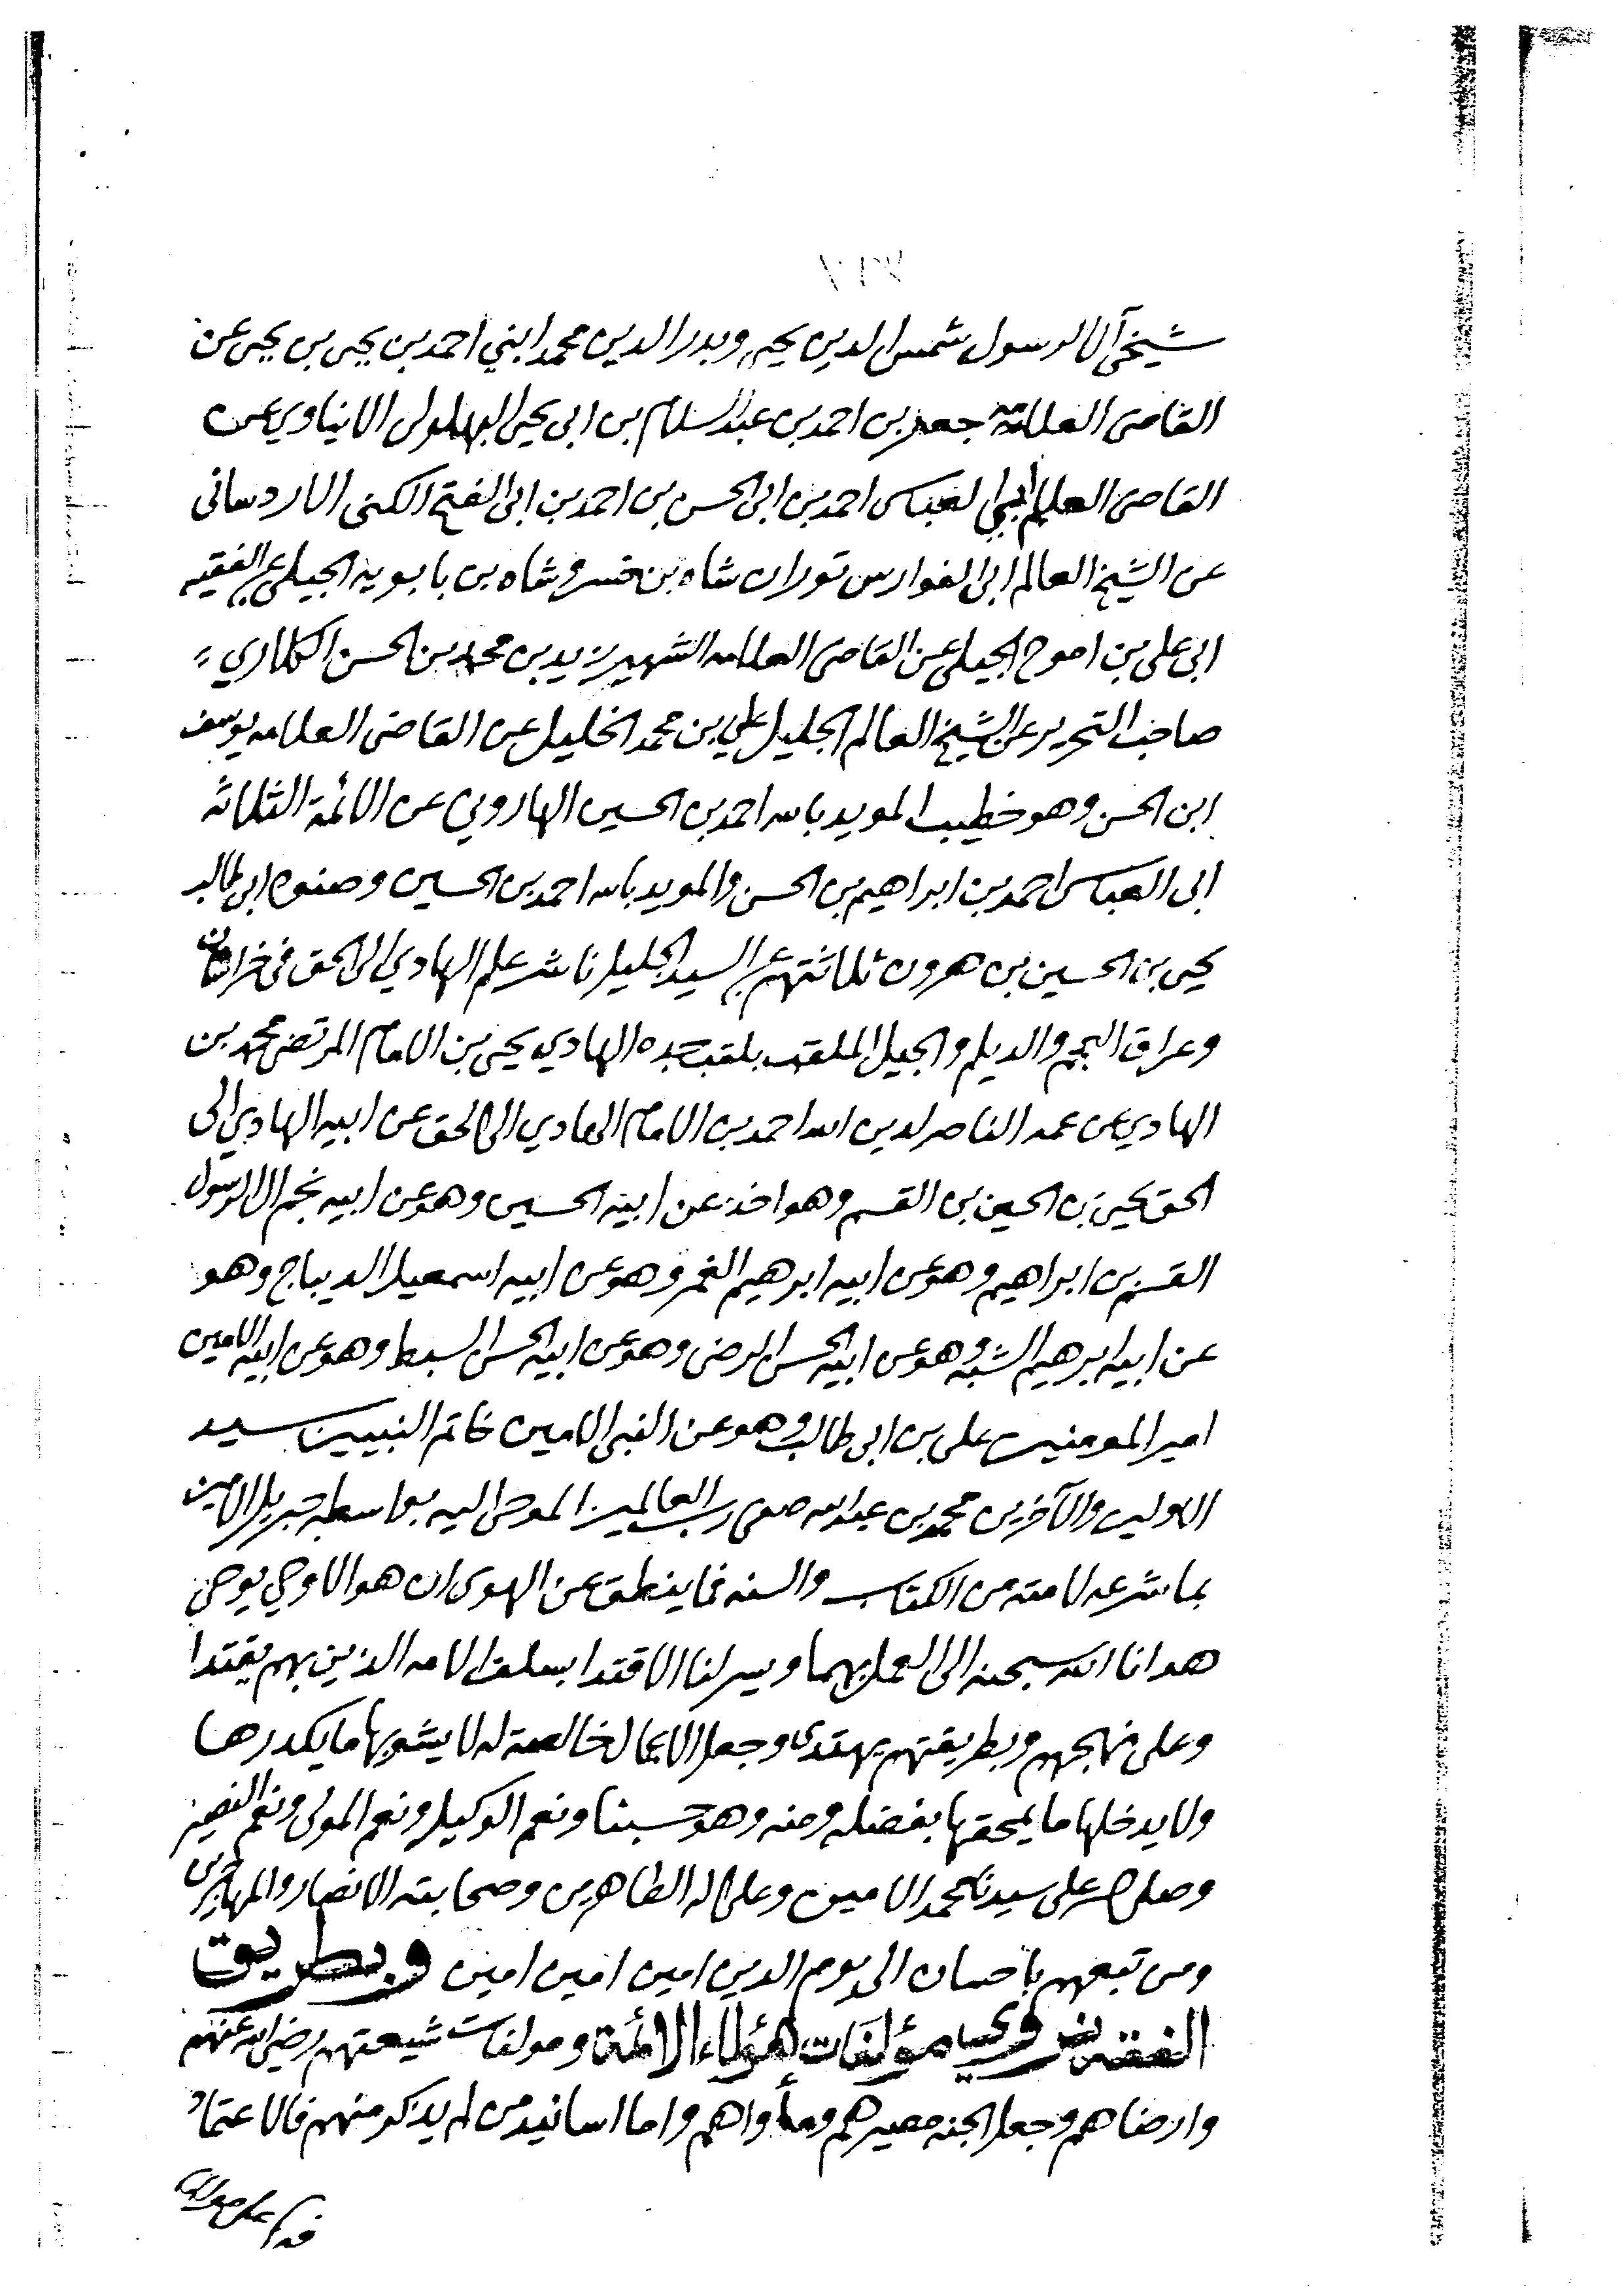 شيخي آل الرسول شمس الدين يحيى وبدر الدين محمد ابني احمد بن يحيى بن يحيى عن
القاضى العلامة جعفر بن احمد بن عبد السلام بن ابى يحيى البهلولى الانباوي عن
القاضى العالم ابي العباس احمد بن ابى الحسن بن احمد بن ابى الفتح الكنى الاردسانى
عن الشيخ العالم ابى الفوارس توران شاه بن خسرو شاه بن بابويه الجيلى عن الفقيه
ابى على بن اموج الجيلى عن القاضى العلامه الشهير زيد بن محمد بن الحسن الكلاري
صاحب التحرير عن الشيخ العالم الجليل علي بن محمد الخليل عن القاضى العلامه يوسف
ابن الحسن وهو خطيب المويد بالله احمد بن الحسين الهاروني عن الائمة الثلاثة
ابى العباس احمد بن ابراهيم بن الحسن والمويد بالله احمد بن الحسين وصنوه ابى طالب
يحيى بن الحسين بن هرون ثلاثتهم عن السيد الجليل ناشر علم الهادي الى الحق فى خراسان
وعراق العجم والديلم والجيل الملقب بلقب جده الهادي يحيى بن الامام المرتضى محمد بن
الهادي عن عمه الناصر لدين الله احمد بن الامام الهادي الى الحق عن ابيه الهادي الى
الحق يحيى بن الحسين بن القسم وهو اخذ عن ابيه الحسين وهو عن ابيه نجم ال الرسول
القسم بن ابراهيم وهو عن ابيه ابرهيم الغمر وهو عن ابيه اسمعيل الديباج وهو
عن ابيه ابرهيم الشبه وهو عن ابيه الحسن الرضى وهو عن ابيه الحسن السبط وهو عن ابيه الامين
امير المومنين على بن ابى طالب وهو عن النبى الامين خاتم النبيين سيد
الاولين والآخرين محمد بن عبدالله صفى رب العالمين الموحى اليه بواسطة جبريل الامين
بما شرعه لامته من الكتاب والسنه فما ينطق عن الهوى ان هو الا وحي يوحى
هدانا الله سبحنه الى العمل بهما ويسر لنا الاقتدا بسلف الامه الذين بهم يقتدا
وعلى منهجهم وبطريقتهم يهتدى وجعل الاعمال خالصة له لا يشوبها ما يكدرها
ولا يدخلها ما يمحقها بفضله ومنه وهو حسبنا ونعم الوكيل ونعم المولى ونعم النصير
وصلى الله على سيدنا محمد الامين وعلى اله الطاهرين وصحابته الانصار والمهاجرين
ومن تبعهم باحسان الى يوم الدين امين امين امين وبطريق
الفقه نروي مؤلفات هؤلاء الائمة ومولفات شيعتهم رضي الله عنهم
وارضاهم وجعل الجنه مصيرهم ومأواهم واما اسانيد من لم يذكر منهم فالاعتماد